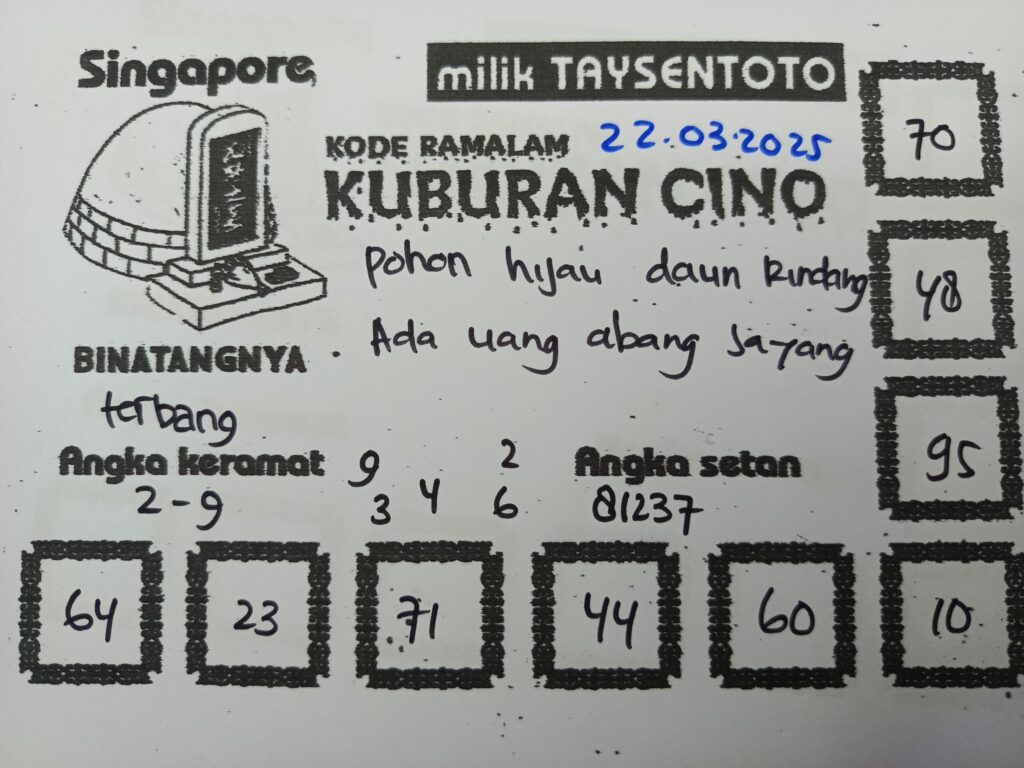 Singapore
milik TAYSENTOTO
70
KODE RAMALAM 22.03.2025
KUBURAN CINO
Pohon hijau daun Rindang
48
Ada uang abang sayang
BINATANGNYA
terbang
95
Angka keramat
2-9
9 2
3 4 6
Angka setan
81237
64 23 71 44 60 10